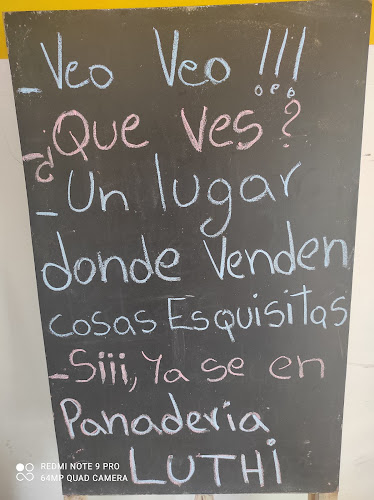 - Veo Veo !!!
- ¿Que ves?
- Un lugar
donde Venden
cosas Esquisitas
- Siii, Ya se en
Panaderia
LUTHi
REDMI NOTE 9 PRO
64MP QUAD CAMERA